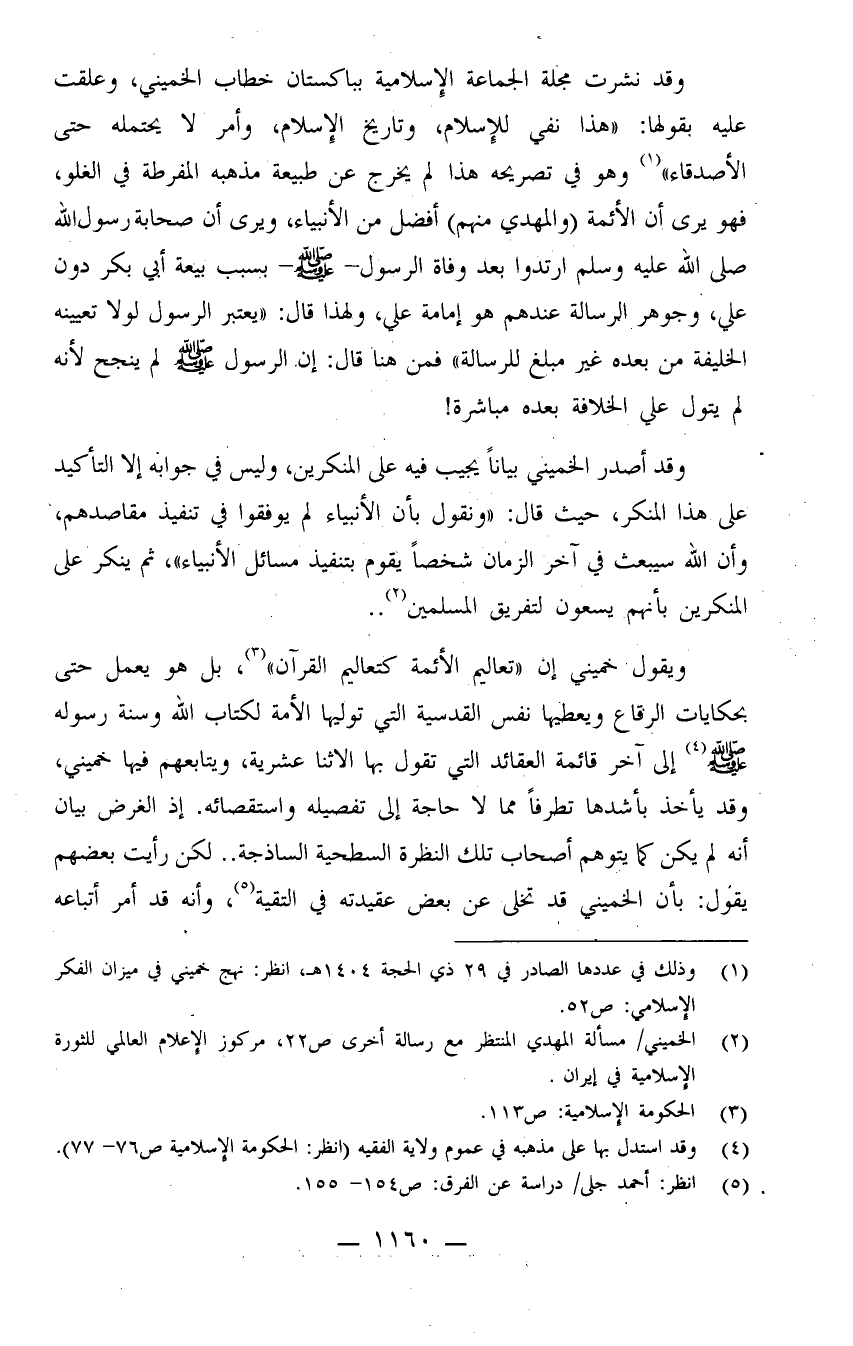 وقد نشرت مجلة الجماعة الإسلامية بباكستان خطاب الخميني، وعلقت
عليه بقولها: «هذا نفي للإسلام، وتاريخ الإسلام، وأمر لا يحتمله حتى
الأصدقاء»(١) وهو في تصريحه هذا لم يخرج عن طبيعة مذهبه المفرطة في الغلو،
فهو يرى أن الأئمة (والمهدي منهم) أفضل من الأنبياء، ويرى أن صحابة رسول الله
صلى الله عليه وسلم ارتدوا بعد وفاة الرسول – ﷺ – بسبب بيعة أبي بكر دون
علي، وجوهر الرسالة عندهم هو إمامة علي، ولهذا قال: «يعتبر الرسول لولا تعيينه
الخليفة من بعده غير مبلغ للرسالة» فمن هنا قال: إن الرسول ﷺ لم ينجح لأنه
لم يتول علي الخلافة بعده مباشرة!
وقد أصدر الخميني بياناً يجيب فيه على المنكرين، وليس في جوابه إلا التأكيد
على هذا المنكر، حيث قال: «ونقول بأن الأنبياء لم يوفقوا في تنفيذ مقاصدهم،
وأن الله سيبعث في آخر الزمان شخصاً يقوم بتنفيذ مسائل الأنبياء»، ثم ينكر على
المنكرين بأنهم يسعون لتفريق المسلمين(٢)..
ويقول خميني إن «تعاليم الأئمة كتعاليم القرآن»(٣)، بل هو يعمل حتى
بحكايات الرقاع ويعطيها نفس القدسية التي توليها الأمة لكتاب الله وسنة رسوله
ﷺ(٤) إلى آخر قائمة العقائد التي تقول بها الاثنا عشرية، ويتابعهم فيها خميني،
وقد يأخذ بأشدها تطرفاً مما لا حاجة إلى تفصيله واستقصائه. إذ الغرض بيان
أنه لم يكن كما يتوهم أصحاب تلك النظرة السطحية الساذجة.. لكن رأيت بعضهم
يقول: بأن الخميني قد تخلى عن بعض عقيدته في التقية(٥)، وأنه قد أمر أتباعه
(١) وذلك في عددها الصادر في ٢٩ ذي الحجة ١٤٠٤هـ، انظر: نهج خميني في ميزان الفكر
الإسلامي: ص٥٢.
(٢) الخميني/ مسألة المهدي المنتظر مع رسالة أخرى ص٢٢، مركوز الإعلام العالمي للثورة
الإسلامية في إيران .
(٣) الحكومة الإسلامية: ص١١٣.
(٤) وقد استدل بها على مذهبه في عموم ولاية الفقيه (انظر: الحكومة الإسلامية ص٧٦– ٧٧).
(٥) انظر: أحمد جلى/ دراسة عن الفرق: ص١٥٤– ١٥٥.
— ١١٦٠ —